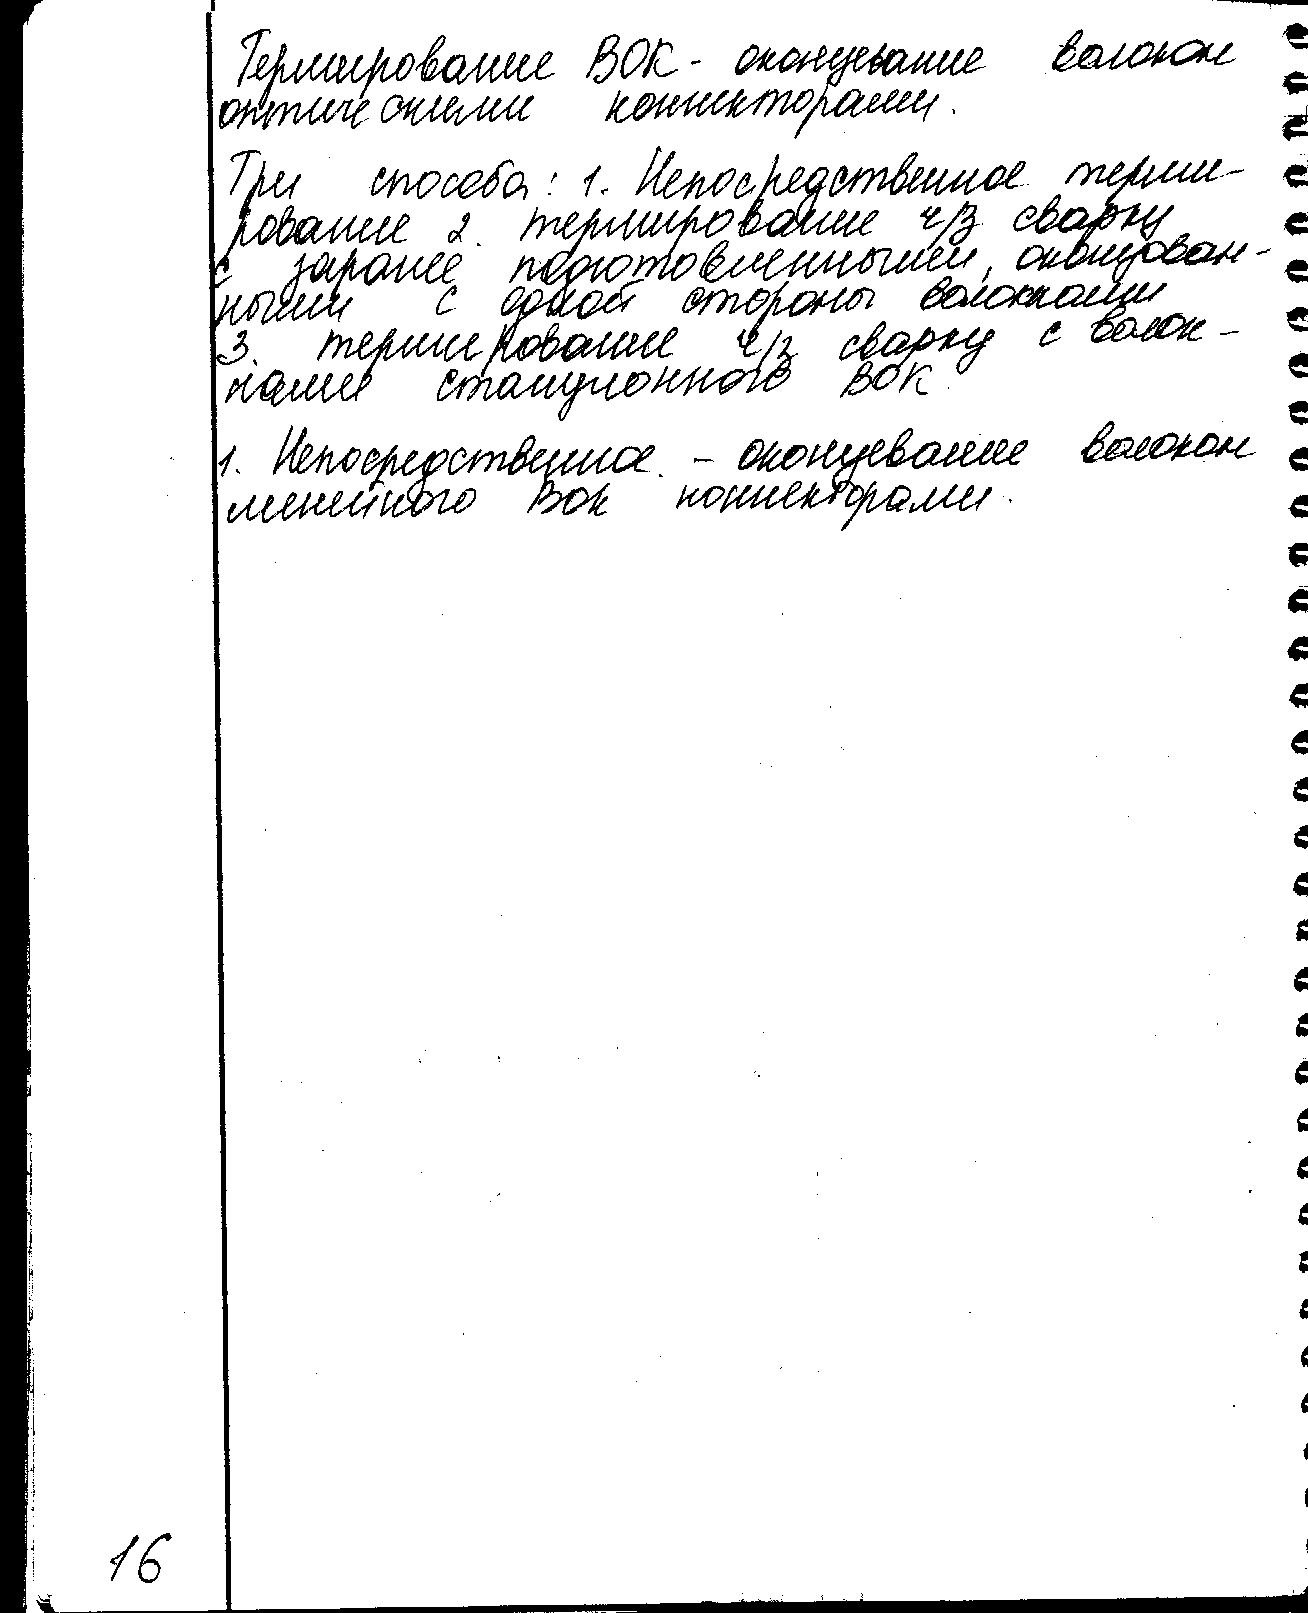 Термирование ВОК - оконцевание волокон
оптическими коннекторами.
Три способа: 1. Непосредственное терми-
рование 2. термирование ч/з сварку
с заранее подготовленными, оконцован-
ными с одной стороны волокнами
3. термирование ч/з сварку с волок-
нами станционного ВОК
1. Непосредственное - оконцевание волокон
линейного ВОК коннекторами.
16